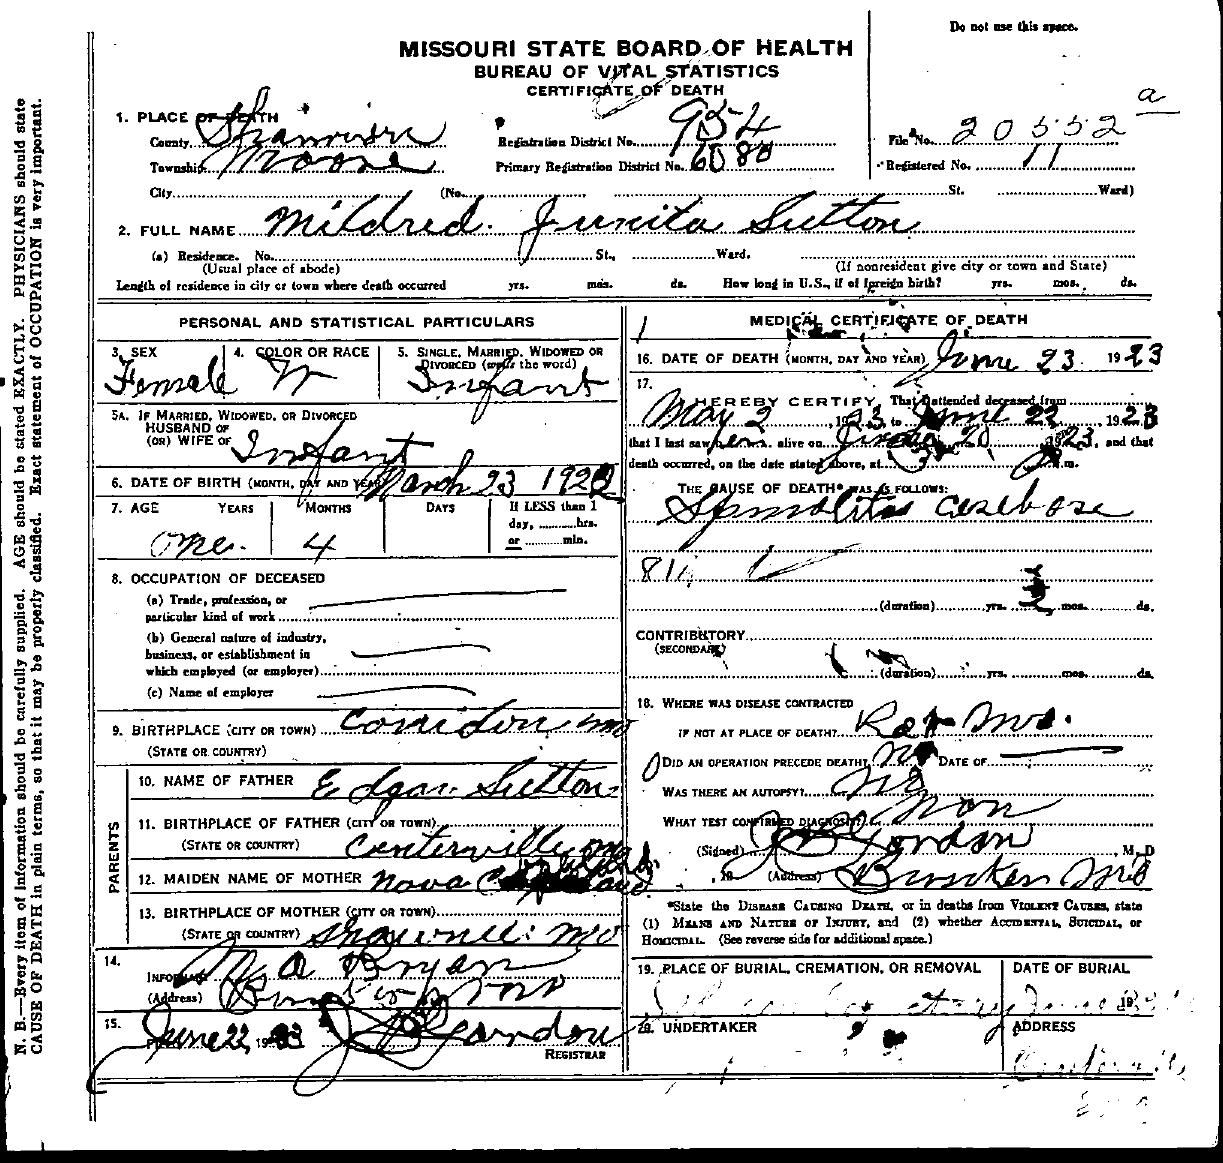 Do not use this space.
MISSOURI STATE BOARD OF HEALTH
BUREAU OF VITAL STATISTICS
CERTIFICATE OF DEATH
a
1. PLACE OF DEATH
County Registration District No. 954 File No. 20552
Township Moore Primary Registration District No. 6080 Registered No. 11
City (No. St. Ward)
2. FULL NAME Mildred Junita Sutton
(a) Residence. No. St., Ward.
(Usual place of abode) (If nonresident give city or town and State)
Length of residence in city or town where death occurred yrs. mos. ds. How long in U.S., if of foreign birth? yrs. mos. ds.
PERSONAL AND STATISTICAL PARTICULARS
3. SEX 4. COLOR OR RACE 5. SINGLE, MARRIED, WIDOWED OR DIVORCED (write the word)
Female W Infant
5A. IF MARRIED, WIDOWED, OR DIVORCED
HUSBAND OF
(OR) WIFE OF Infant
6. DATE OF BIRTH (MONTH, DAY AND YEAR) March 23 1922
7. AGE YEARS MONTHS DAYS If LESS than 1
day, hrs.
or min.
One. 4
8. OCCUPATION OF DECEASED
(a) Trade, profession, or
particular kind of work
(b) General nature of industry,
business, or establishment in
which employed (or employer)
(c) Name of employer
9. BIRTHPLACE (CITY OR TOWN) Corridon Mo
(STATE OR COUNTRY)
PARENTS
10. NAME OF FATHER Edgar Sutton
11. BIRTHPLACE OF FATHER (CITY OR TOWN)
(STATE OR COUNTRY) Centerville Mo
12. MAIDEN NAME OF MOTHER Nova
13. BIRTHPLACE OF MOTHER (CITY OR TOWN)
(STATE OR COUNTRY) Mo
14.
INFORMANT Bryan
(Address)
15.
June 22, 1923 Gordon
REGISTRAR
MEDICAL CERTIFICATE OF DEATH
16. DATE OF DEATH (MONTH, DAY AND YEAR) June 23 1923
17.
I HEREBY CERTIFY, That I attended deceased from
May 2, 1923, to June 22, 1923
that I last saw her alive on June 20, 1923, and that
death occurred, on the date stated above, at 3 P m.
THE CAUSE OF DEATH* WAS AS FOLLOWS:
(duration) yrs. 2 mos. ds.
CONTRIBUTORY
(SECONDARY)
(duration) yrs. mos. ds.
18. WHERE WAS DISEASE CONTRACTED
IF NOT AT PLACE OF DEATH? Mo.
DID AN OPERATION PRECEDE DEATH? No DATE OF
WAS THERE AN AUTOPSY? No
WHAT TEST CONFIRMED DIAGNOSIS? Non
(Signed) Gordon, M.D
, 19 (Address) Bunker Mo
*State the DISEASE CAUSING DEATH, or in deaths from VIOLENT CAUSES, state
(1) MEANS AND NATURE OF INJURY, and (2) whether ACCIDENTAL, SUICIDAL, or
HOMICIDAL. (See reverse side for additional space.)
19. PLACE OF BURIAL, CREMATION, OR REMOVAL DATE OF BURIAL
20. UNDERTAKER ADDRESS
N. B.—Every item of information should be carefully supplied. AGE should be stated EXACTLY. PHYSICIANS should state
CAUSE OF DEATH in plain terms, so that it may be properly classified. Exact statement of OCCUPATION is very important.